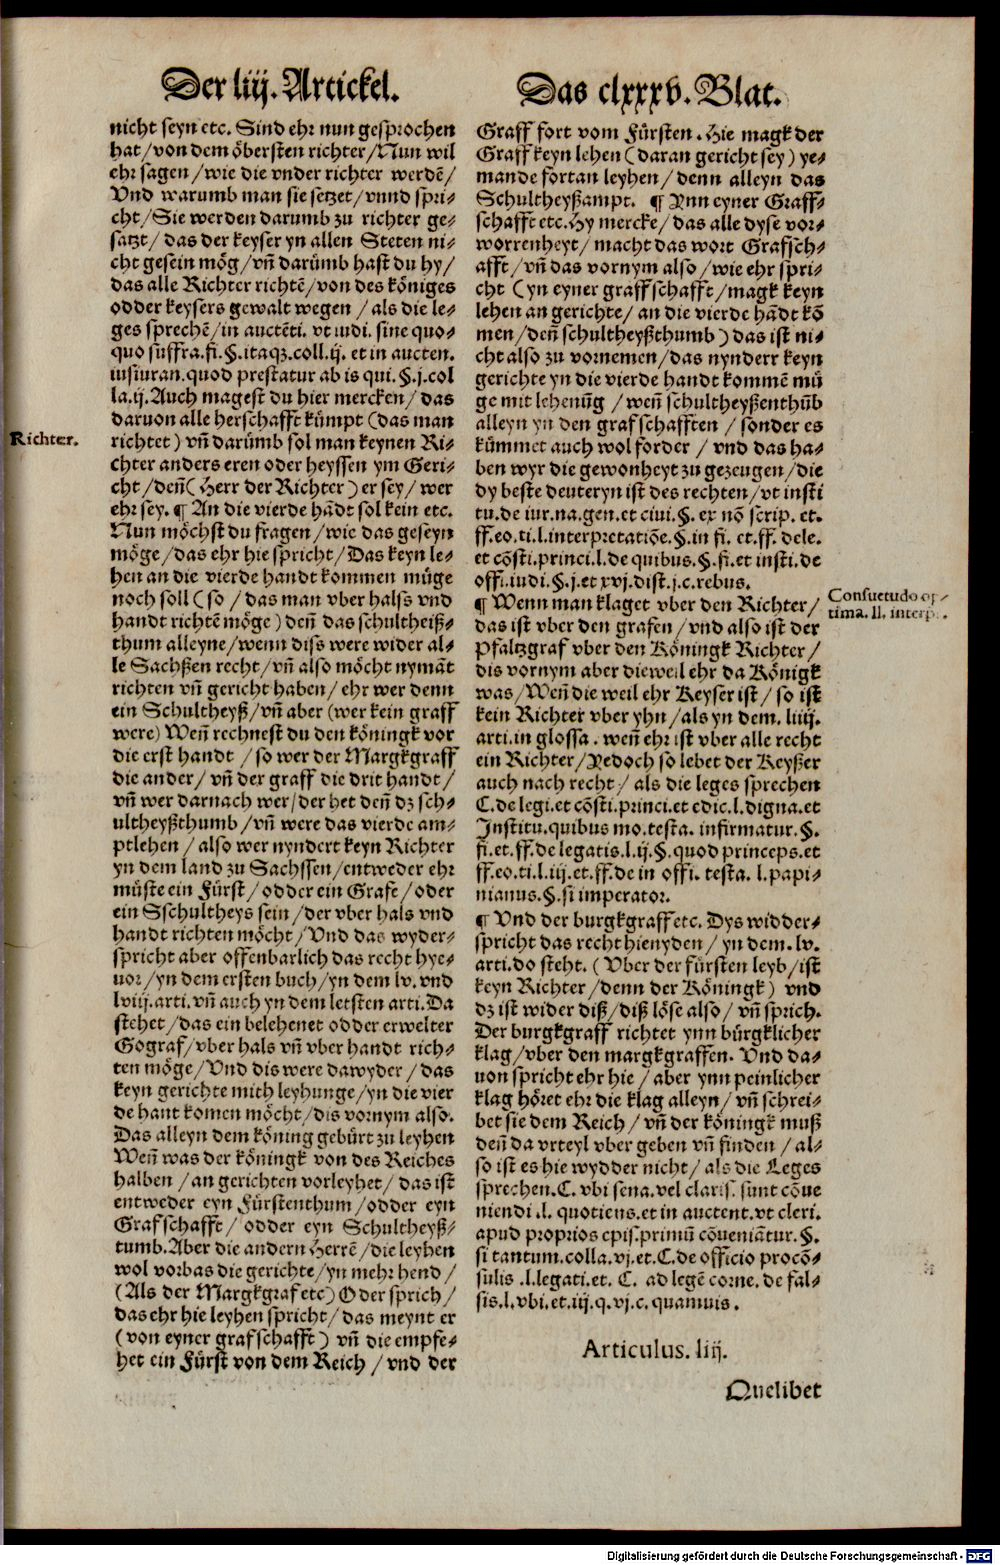 Der liij. Artickel.
nicht seyn etc. Sind ehr nun gesprochen
hat/von dem öbersten richter/Nun wil
ehr sagen/wie die vnder richter werdē/
Vnd warumb man sie setzet/vnnd spri⸗
cht/Sie werden darumb zu richter ge⸗
satzt/das der keyser yn allen Steten ni⸗
cht gesein mög/vñ darümb hast du hy/
das alle Richter richtē/von des königes
odder keysers gewalt wegen/als die le⸗
ges sprechē/in auctēti. vt iudi. sine quo⸗
quo suffra.fi.§.itaqz.coll.ij. et in aucten.
iusiuran.quod prestatur ab is qui.§.j.col
la.ij.Auch magest du hier mercken/das
daruon alle herschafft kümpt (das man
Richter.
richtet) vñ darümb sol man keynen Ri⸗
chter anders eren oder heyssen ym Geri⸗
cht/deñ( Herr der Richter) er sey/wer
ehr sey. ¶ An die vierde hādt sol kein etc.
Nun möchst du fragen/wie das geseyn
möge/das ehr hie spricht/Das keyn le⸗
hen an die vierde handt kommen müge
noch soll (so/das man vber halss vnd
handt richtē möge) deñ das schultheiß⸗
thum alleyne/wenn diss were wider al⸗
le Sachßen recht/vñ also möcht nymāt
richten vñ gericht haben/ehr wer denn
ein Schultheyß/vñ aber (wer kein graff
were) Weñ rechnest du den köningk vor
die erst handt/so wer der Margkgraff
die ander/vñ der graff die drit handt/
vñ wer darnach wer/der het deñ dz sch⸗
ultheyßthumb/vñ were das vierde am⸗
ptlehen/also wer nyndert keyn Richter
yn dem land zu Sachssen/entweder ehr
müste ein Fürst/odder ein Grafe/oder
ein Sschultheys sein/der vber hals vnd
handt richten möcht/Vnd das wyder⸗
spricht aber offenbarlich das recht hye⸗
uor/yn dem ersten buch/yn dem lv. vnd
lviij.arti. vñ auch yn dem letsten arti.Da
stehet/das ein belehenet odder erwelter
Gograf/vber hals vñ vber handt rich⸗
ten möge/Vnd dis were dawyder/das
keyn gerichte mith leyhunge/yn die vier
de hant komen möcht/dis vornym also.
Das alleyn dem köning gebürt zu leyhen
Weñ was der köningk von des Reiches
halben/an gerichten vorleyhet/das ist
entweder eyn Fürstenthum/odder eyn
Grafschafft/odder eyn Schultheyß⸗
tumb.Aber die andern Herrē/die leyhen
wol vorbas die gerichte/yn mehr hend/
(Als der Margkgraf etc) Oder sprich/
das ehr hie leyhen spricht/das meynt er
(von eyner grafschafft) vñ die empfe⸗
het ein Fürst von dem Reich/vnd der
Das clxxxv. Blat.
Graff fort vom Fürsten. Hie magk der
Graff keyn lehen (daran gericht sey) ye⸗
mande fortan leyhen/denn alleyn das
Schultheyßampt. ¶ Ynn eyner Graff⸗
schafft etc.Hy mercke/das alle dyse vor⸗
worrenheyt/macht das wort Grafsch⸗
afft/vñ das vornym also/wie ehr spri⸗
cht (yn eyner graffschafft/magk keyn
lehen an gerichte/an die vierde hādt kō
men/deñ schultheyßthumb) das ist ni⸗
cht also zu vornemen/das nynderr keyn
gerichte yn die vierde handt kommē mü
ge mit lehenūg/weñ schultheyßenthūb
alleyn yn den grafschafften/sonder es
kümmet auch wol forder/vnd das ha⸗
ben wyr die gewonheyt zu gezeugen/die
dy beste deuteryn ist des rechten/vt insti
tu.de iur.na.gen.et ciui.§. ex nō scrip. et.
ff.eo.ti.l.interpretatiōe.§.in fi. et.ff. dele.
et cōsti.princi.l.de quibus.§.fi.et insti.de
offi.iudi.§.j.et xvj.dist.j.c.rebus.
Consuetudo op⸗
tima. ll. interp.
¶ Wenn man klaget vber den Richter/
das ist vber den grafen/vnd also ist der
Pfaltzgraf vber den Köningk Richter/
dis vornym aber dieweil ehr da Königk
was/Weñ die weil ehr Keyser ist/so ist
kein Richter vber yhn/als yn dem. liiij.
arti.in glossa. weñ ehr ist vber alle recht
ein Richter/Yedoch so lebet der Keyßer
auch nach recht/als die leges sprechen
C.de legi.et cōsti.princi.et edic.l.digna.et
Institu.quibus mo.testa. infirmatur.§.
fi.et.ff.de legatis.l.ij.§.quod princeps.et
ff.eo.ti.l.iij.et.ff.de in offi. testa. l.papi⸗
nianus.§.si imperator.
¶ Vnd der burgkgraff etc. Dys widder⸗
spricht das recht hienyden/yn dem. lv.
arti.do steht. (Vber der fürsten leyb/ist
keyn Richter/denn der Köningk) vnd
dz ist wider diß/diß löse also/vñ sprich.
Der burgkgraff richtet ynn bürgklicher
klag/vber den margkgraffen. Vnd da⸗
uon spricht ehr hie/aber ynn peinlicher
klag höret ehr die klag alleyn/vñ schrei⸗
bet sie dem Reich/vñ der köningk muß
deñ da vrteyl vber geben vñ finden/al⸗
so ist es hie wydder nicht/als die Leges
sprechen.C. vbi sena.vel claris. sunt cōue
niendi.l. quotiens.et in auctent.vt cleri.
apud proprios epis.primū cōueniātur.§.
si tantum.colla.vj.et.C.de officio procō⸗
sulis.l.legati.et. C. ad legē corne. de fal⸗
sis.l.vbi.et.iij.q.vj.c.quamuis.
Articulus. liij.
Quelibet
Digitalisierung gefördert durch die Deutsche Forschungsgemeinschaft - DFG